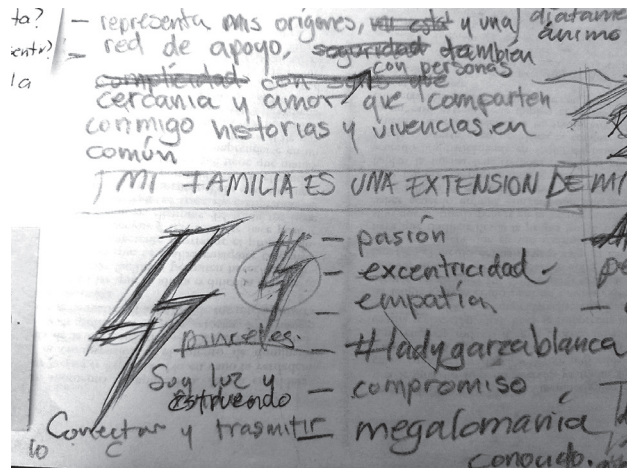 ta? — representa mis orígenes, mi está y una diatame
red de apoyo, seguridad también ánimo
la complicidad con con personas que
cercanía y amor que comparten
conmigo historias y vivencias en
común
MI FAMILIA ES UNA EXTENSION DE MI
— pasión
— excentricidad
— empatía
pinceles.
— #ladygarzablanca
Soy luz y
estruendo
— compromiso
Conectar y trasmitir
— megalomanía
conocido.